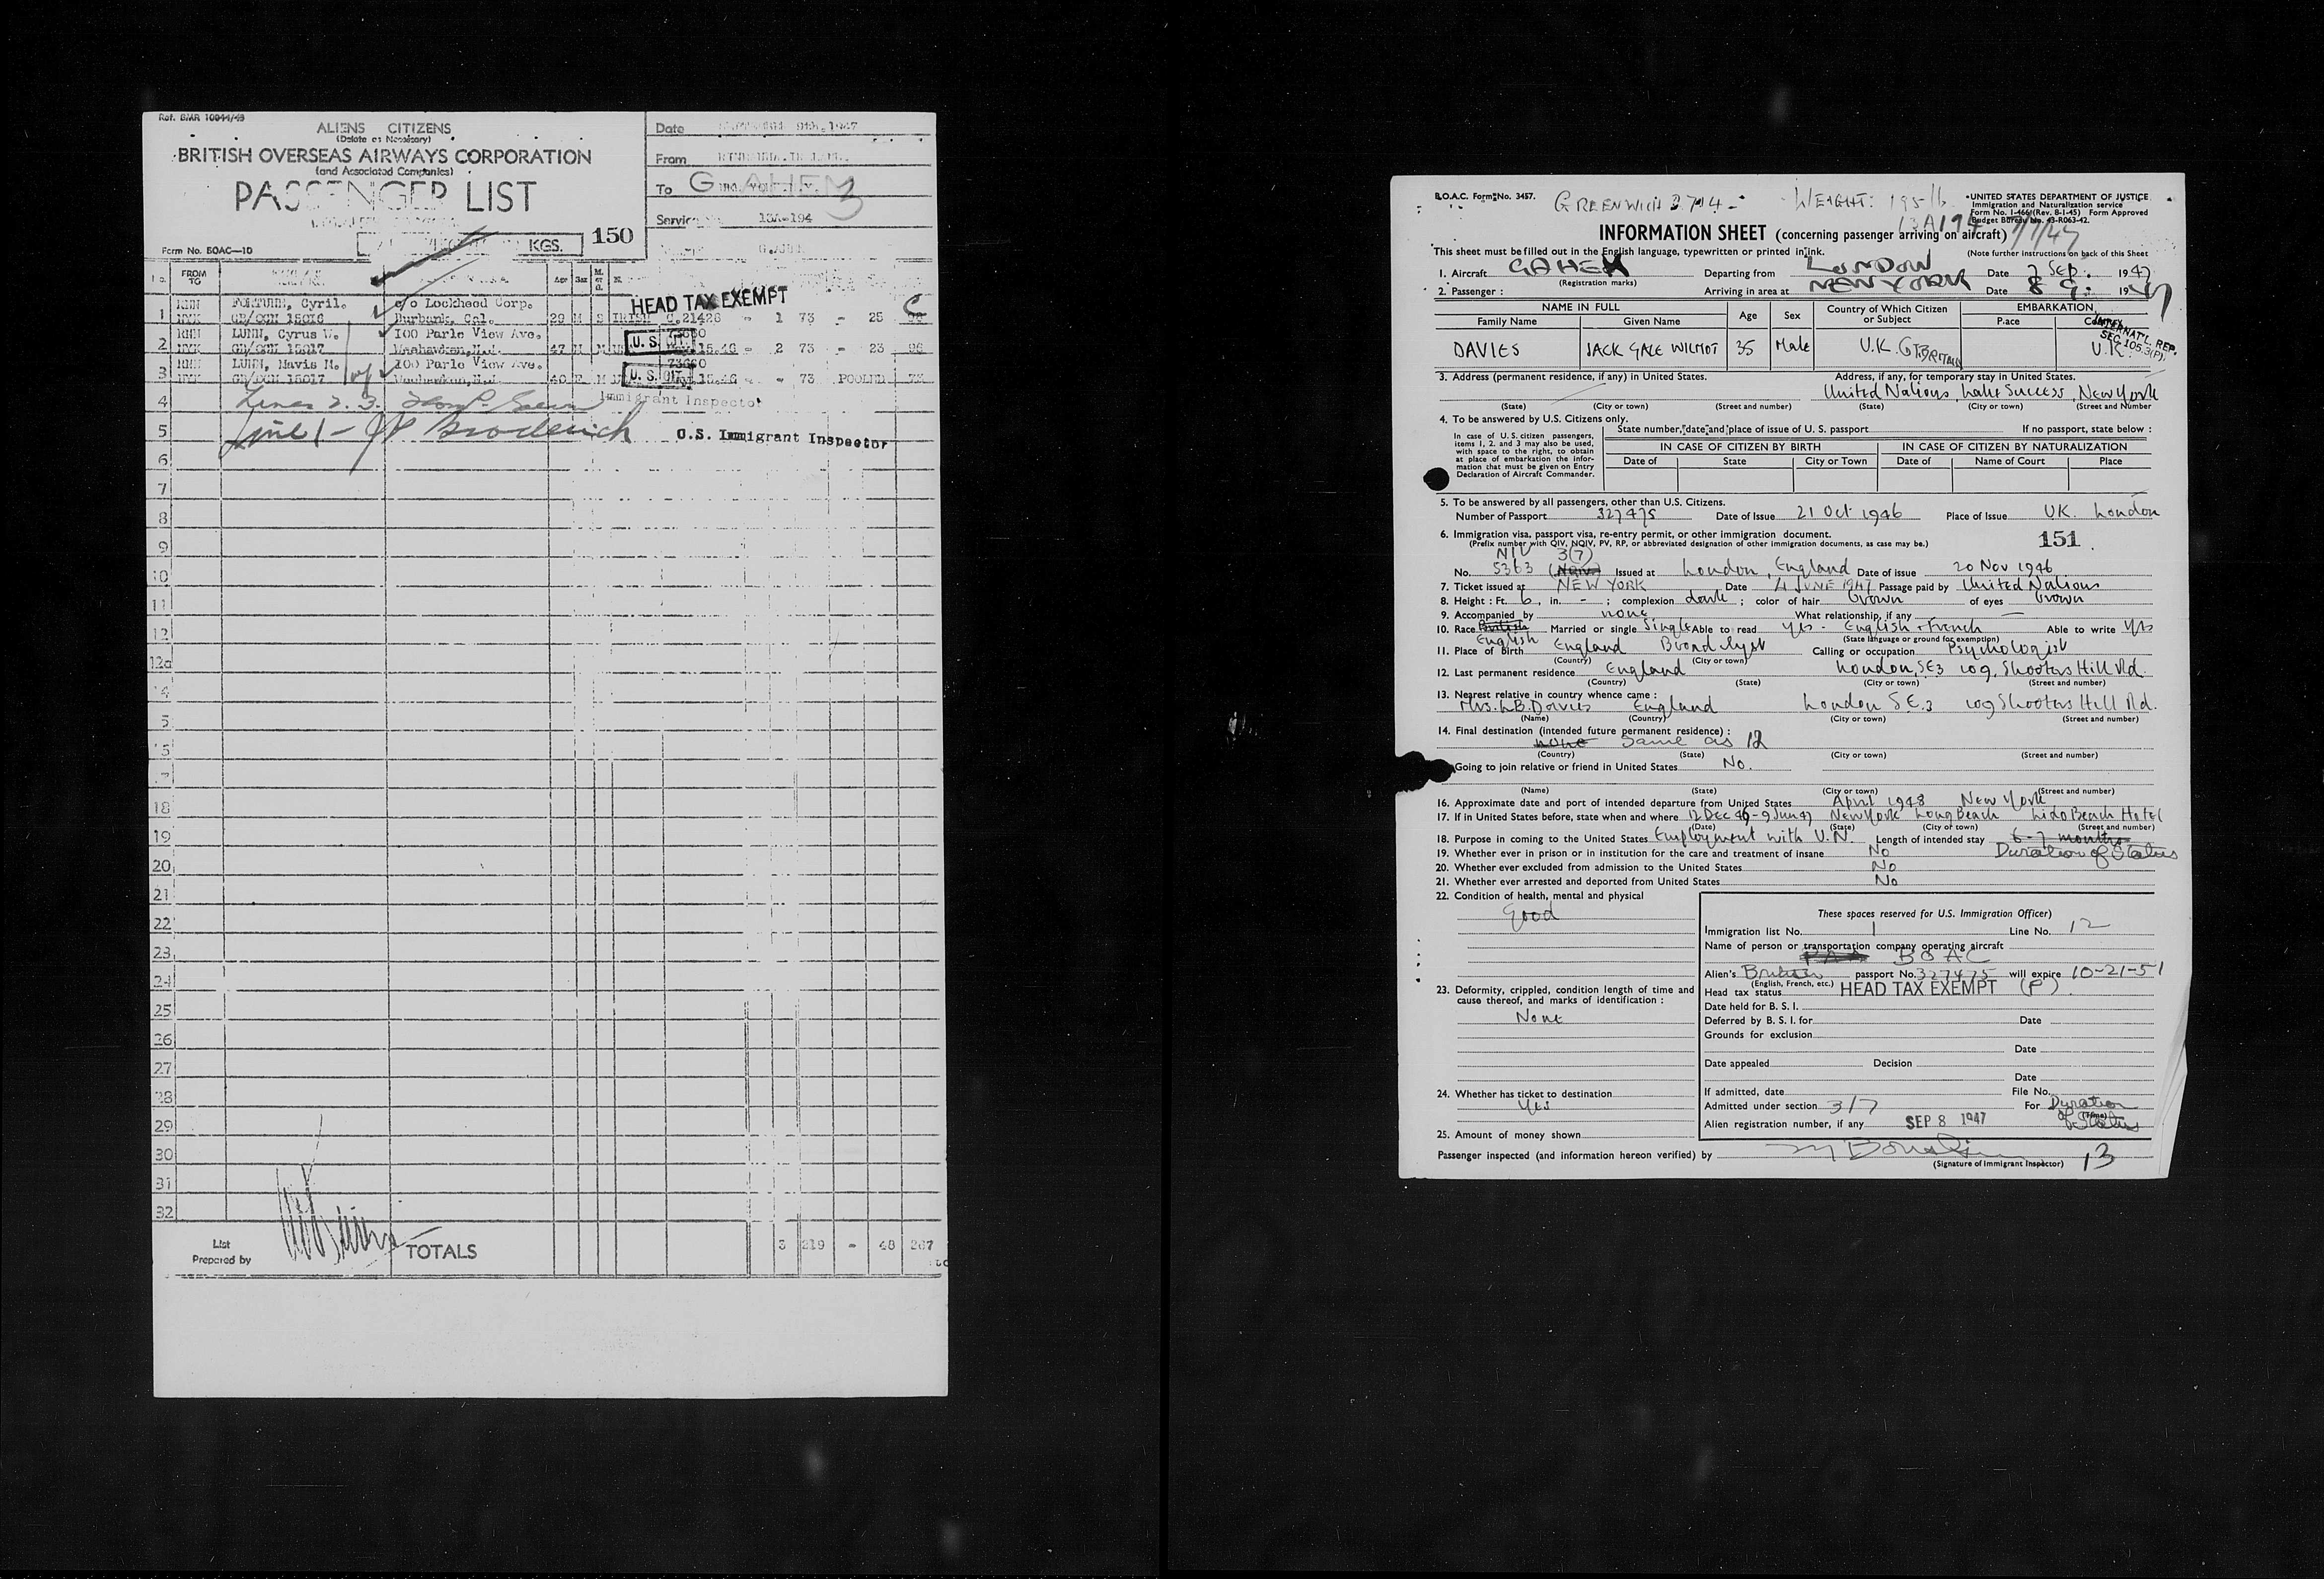 Ref. BMR 10944/49
ALIENS CITIZENS
(Delete as Necessary)
BRITISH OVERSEAS AIRWAYS CORPORATION
(and Associated Companies)
PASSENGER LIST
KGS. 150
Form No. BOAC—1D
Date 9th.1947
From
To G
3
Service 13A-194
FROM TO
Age Sex
HEAD TAX EXEMPT
1 Cyril. c/o Lockheed Corp.
NYK GB/OGN 15016 Burbank, Cal. 29 M S IRISH 21428 - 1 73 - 25
2 LUNN, Cyrus W. 100 Parle View Ave.
NYK 15017 47 M U.S. CIT. 15.46 - 2 73 - 23 96
3 LUNN, Mavis M. 100 Parle View Ave. 73660
NYK 15017 40 F M U.S. CIT. 15.46 - - 73 POOLED 73
4 Lines 2.3. Immigrant Inspector
5 Line 1 - JP Broderick U.S. Immigrant Inspector
6
7
8
9
10
11
12
12a
14
18
19
20
21
22
23
24
25
26
27
28
29
30
31
32
List Prepared by TOTALS 3 219 - 48 267
B.O.A.C. Form No. 3457. GREENWICH 3714 - WEIGHT: 195 lb
UNITED STATES DEPARTMENT OF JUSTICE
Immigration and Naturalization service
Form No. I-466 (Rev. 8-1-45) Form Approved
Budget Bureau No. 43-R063-42.
13A194 7/9/47
INFORMATION SHEET (concerning passenger arriving on aircraft)
This sheet must be filled out in the English language, typewritten or printed in ink. (Note further instructions on back of this Sheet
1. Aircraft GAHEM Departing from LONDON Date 7 Sep. 1947
(Registration marks)
2. Passenger : Arriving in area at NEW YORK Date 8 9. 1947
NAME IN FULL Age Sex Country of Which Citizen or Subject EMBARKATION
Family Name Given Name Place Country
INTERNAT'L. REP. SEC 105.3(P).
DAVIES JACK GALE WILMOT 35 Male U.K. GT. BRITAIN U.K.
3. Address (permanent residence, if any) in United States. Address, if any, for temporary stay in United States.
United Nations, Lake Success, New York
(State) (City or town) (Street and number) (State) (City or town) (Street and Number
4. To be answered by U.S. Citizens only.
State number, date, and place of issue of U. S. passport If no passport, state below :
In case of U. S. citizen passengers, items 1, 2, and 3 may also be used, with space to the right, to obtain at place of embarkation the information that must be given on Entry Declaration of Aircraft Commander.
IN CASE OF CITIZEN BY BIRTH IN CASE OF CITIZEN BY NATURALIZATION
Date of State City or Town Date of Name of Court Place
5. To be answered by all passengers, other than U.S. Citizens.
Number of Passport 327475 Date of Issue 21 Oct 1946 Place of Issue U.K. London
6. Immigration visa, passport visa, re-entry permit, or other immigration document.
(Prefix number with QIV, NQIV, PV, RP, or abbreviated designation of other immigration documents, as case may be.) 151
NIV 3(7)
No. 5363 (NQIV) Issued at London, England Date of issue 20 Nov 1946
7. Ticket issued at NEW YORK Date 4 JUNE 1947 Passage paid by United Nations
8. Height : Ft. 6, in. - ; complexion dark ; color of hair brown of eyes brown
9. Accompanied by none What relationship, if any —
10. Race British Married or single Single Able to read yes - English + French Able to write yes
English (State language or ground for exemption)
11. Place of Birth England Broadclyst Calling or occupation Psychologist
(Country) (City or town)
12. Last permanent residence England London, SE3 109, Shooters Hill Rd.
(Country) (State) (City or town) (Street and number)
13. Nearest relative in country whence came :
Mrs. L.B. Davies England London S.E.3 109 Shooters Hill Rd.
(Name) (Country) (City or town) (Street and number)
14. Final destination (intended future permanent residence) :
none Same as 12
(Country) (State) (City or town) (Street and number)
Going to join relative or friend in United States No.
(Name) (State) (City or town) (Street and number)
16. Approximate date and port of intended departure from United States April 1948 New York
17. If in United States before, state when and where 12 DEC 46 - 9 Jun 47 New York Long Beach Lido Beach Hotel
(Date) (State) (City or town) (Street and number)
18. Purpose in coming to the United States Employment with U.N. Length of intended stay 6-7 months
19. Whether ever in prison or in institution for the care and treatment of insane No Duration of Status
20. Whether ever excluded from admission to the United States No
21. Whether ever arrested and deported from United States No
22. Condition of health, mental and physical
Good
23. Deformity, crippled, condition length of time and cause thereof, and marks of identification :
None
24. Whether has ticket to destination
Yes
25. Amount of money shown
These spaces reserved for U.S. Immigration Officer)
Immigration list No. 1 Line No. 12
Name of person or transportation company operating aircraft
PAA BOAC
Alien's British passport No. 327475 will expire 10-21-51
(English, French, etc.)
Head tax status HEAD TAX EXEMPT (P)
Date held for B. S. I.
Deferred by B. S. I. for Date
Grounds for exclusion
Date
Date appealed Decision
Date
If admitted, date File No.
Admitted under section 3/7 For Duration of Status
(Time)
Alien registration number, if any SEP 8 1947
Passenger inspected (and information hereon verified) by
(Signature of Immigrant Inspector) 13